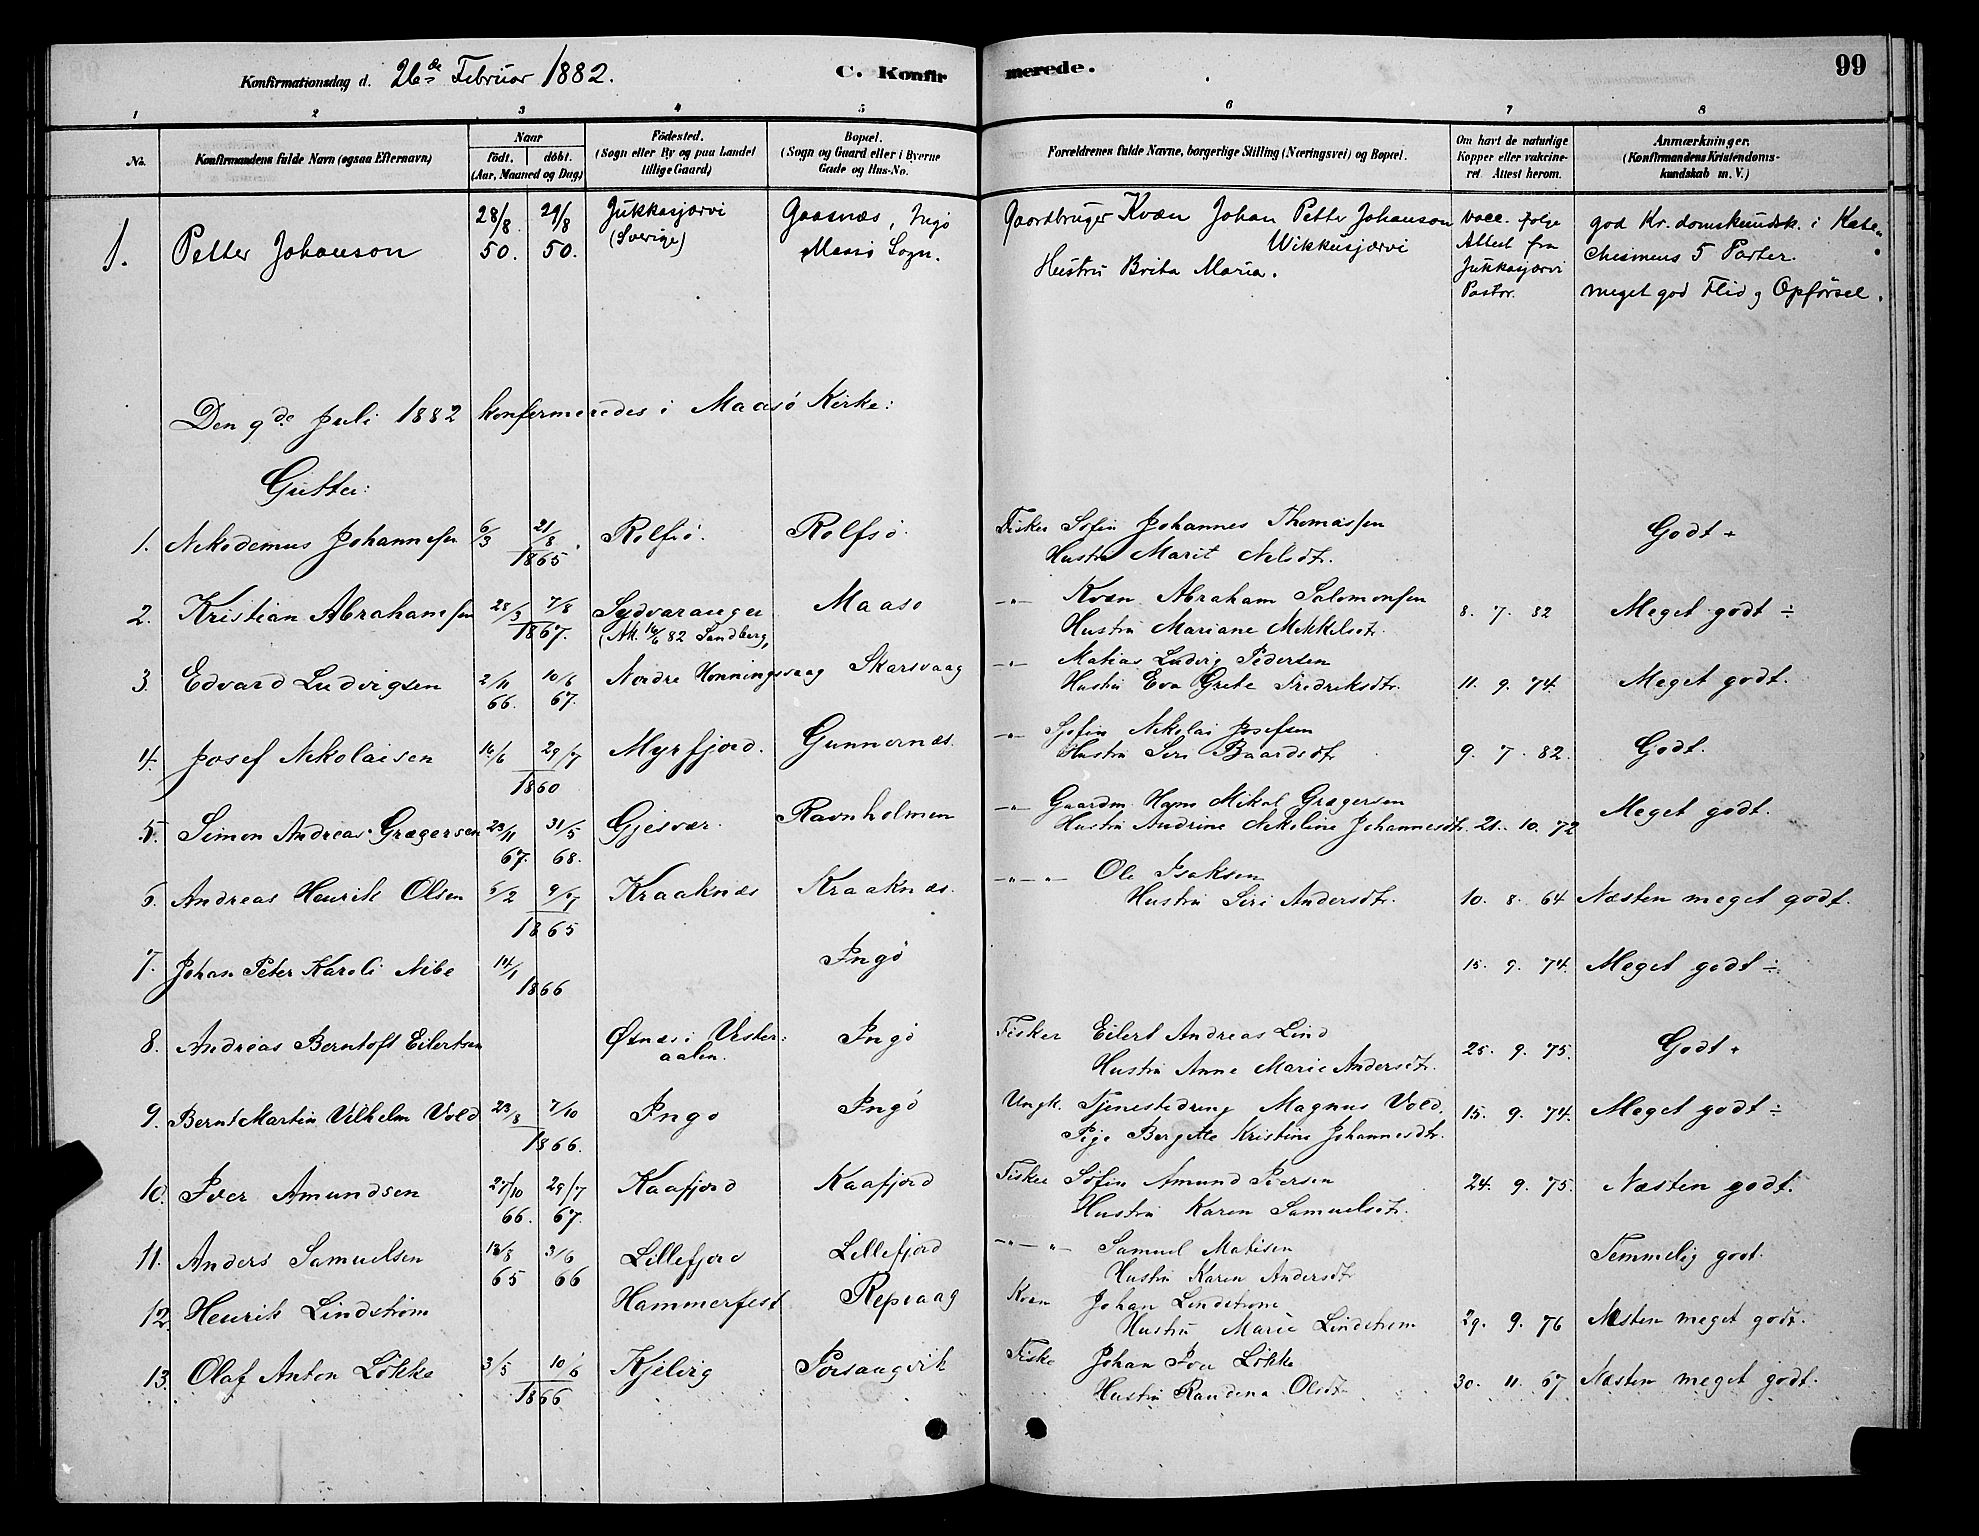 Konfirmationsdag d. 26de Februar 1882. C. Konfirmerede. 99
1 2 3 4 5 6 7 8
No. Konfirmandens fulde Navn (ogsaa Efternavn) Naar født. døbt. (Aar, Maaned og Dag) Fødested. (Sogn eller By og paa Landet tillige Gaard) Bopæl. (Sogn og Gaard eller i Byerne Gade og Hus-No. Forældrenes fulde Navne, borgerlige Stilling (Næringsvei) og Bopæl. Om havt de naturlige Kopper eller vakcineret. Attest herom. Anmærkninger. (Konfirmandens Kristendomskundskab m. V.)
1. Petter Johanson 28/8 50. 29/8 50. Jukkasjærvi (Sverige) Gaasnæs, Ingø Maasø Sogn. Gaardbruger Kvæn Johan Petter Johanson Wikkusjærvi
Hustru Brita Maria. vacc. følge Attest fra Jukkasjærvi Pastor. god Kr.domskundsk. i Katechismens 5 Parter.
meget god Flid og Opførsel.
Den 9de Juli 1882 konfirmeredes i Maasø Kirke:
Gutter:
1. Nekodemus Johannesen 6/3 21/8 1865. Rolfsø. Rolfsø. Fisker Søfin Johannes Thomassen
Hustru Marit Nilsdtr. Godt +
2. Kristian Abrahamsen 28/3 7/8 1867. Sydvaranger (Ak. 16/6 82 Sandberg) Maasø -"- Kvæn Abraham Salomonsen
Hustru Mariane Mikkelsdtr. 8. 7. 82 Meget godt ÷
3. Edvard Ludvigsen 2/11 66. 10/6 67. Nordre Honningsvaag Skarsvaag -"- Matias Ludvig Pedersen
Hustru Eva Grete Fredriksdtr. 11. 9. 74. Meget godt.
4. Josef Nikolaisen 16/6 29/7 1860 Myrfjord. Gunnernæs. -"- Sjøfin Nikolai Josefsen
Hustru Siri Baardsdtr 9. 7. 82. Godt.
5. Simon Andreas Grægersen 23/11 67. 31/5 68. Gjesvær. Ravnholmen -"- Gaardm. Hans Mikal Grægersen
Hustru Andrine Nikoline Johannesdtr. 21. 10. 72 Meget godt.
6. Andreas Henrik Olsen 5/2 9/7 1865 Kraaknæs Kraaknæs. -"-"- Ole Isaksen
Hustru Siri Andersdtr. 10. 8. 64 Næsten meget godt.
7. Johan Peter Karoli Nibe 14/1 1866 Ingø 15. 9. 74. Meget godt ÷
8. Andreas Berntoft Eilertsen Øxnæs i Vesteraalen. Ingø Fisker Eilert Andreas Lind
Hustru Anne Marie Andersdtr. 25. 9. 75. Godt +
9. Bernt Martin Vilhelm Vold 23/8 7/10 1866. Ingø Ingø Ungk. Tjenestedreng Magnus Vold.
Pige Bergitte Kristine Johannesdtr. 15. 9. 74. Meget godt ÷
10. Iver Amundsen 27/10 66. 29/7 67. Kaafjord Kaafjord Fisker Søfin Amund Iversen
Hustru Karen Samuelsdtr. 24. 9. 75. Næsten godt.
11. Anders Samuelsen 12/8 65 3/6 66 Lillefjord Lillefjord -"-"- Samuel Matisen
Hustru Karen Andersdtr Temmelig godt.
12. Henrik Lindstrøm Hammerfest Repvaag Kvæn Johan Lindstrøm
Hustru Marie Lindstrøm 29. 9. 76 Næsten meget godt.
13. Olaf Anton Løkke 3/5 10/6 1866 Kjelvig Porsangvik Fisker Johan Iver Løkke
Hustru Randina Olsdtr 30. 11. 67 Næsten meget godt.